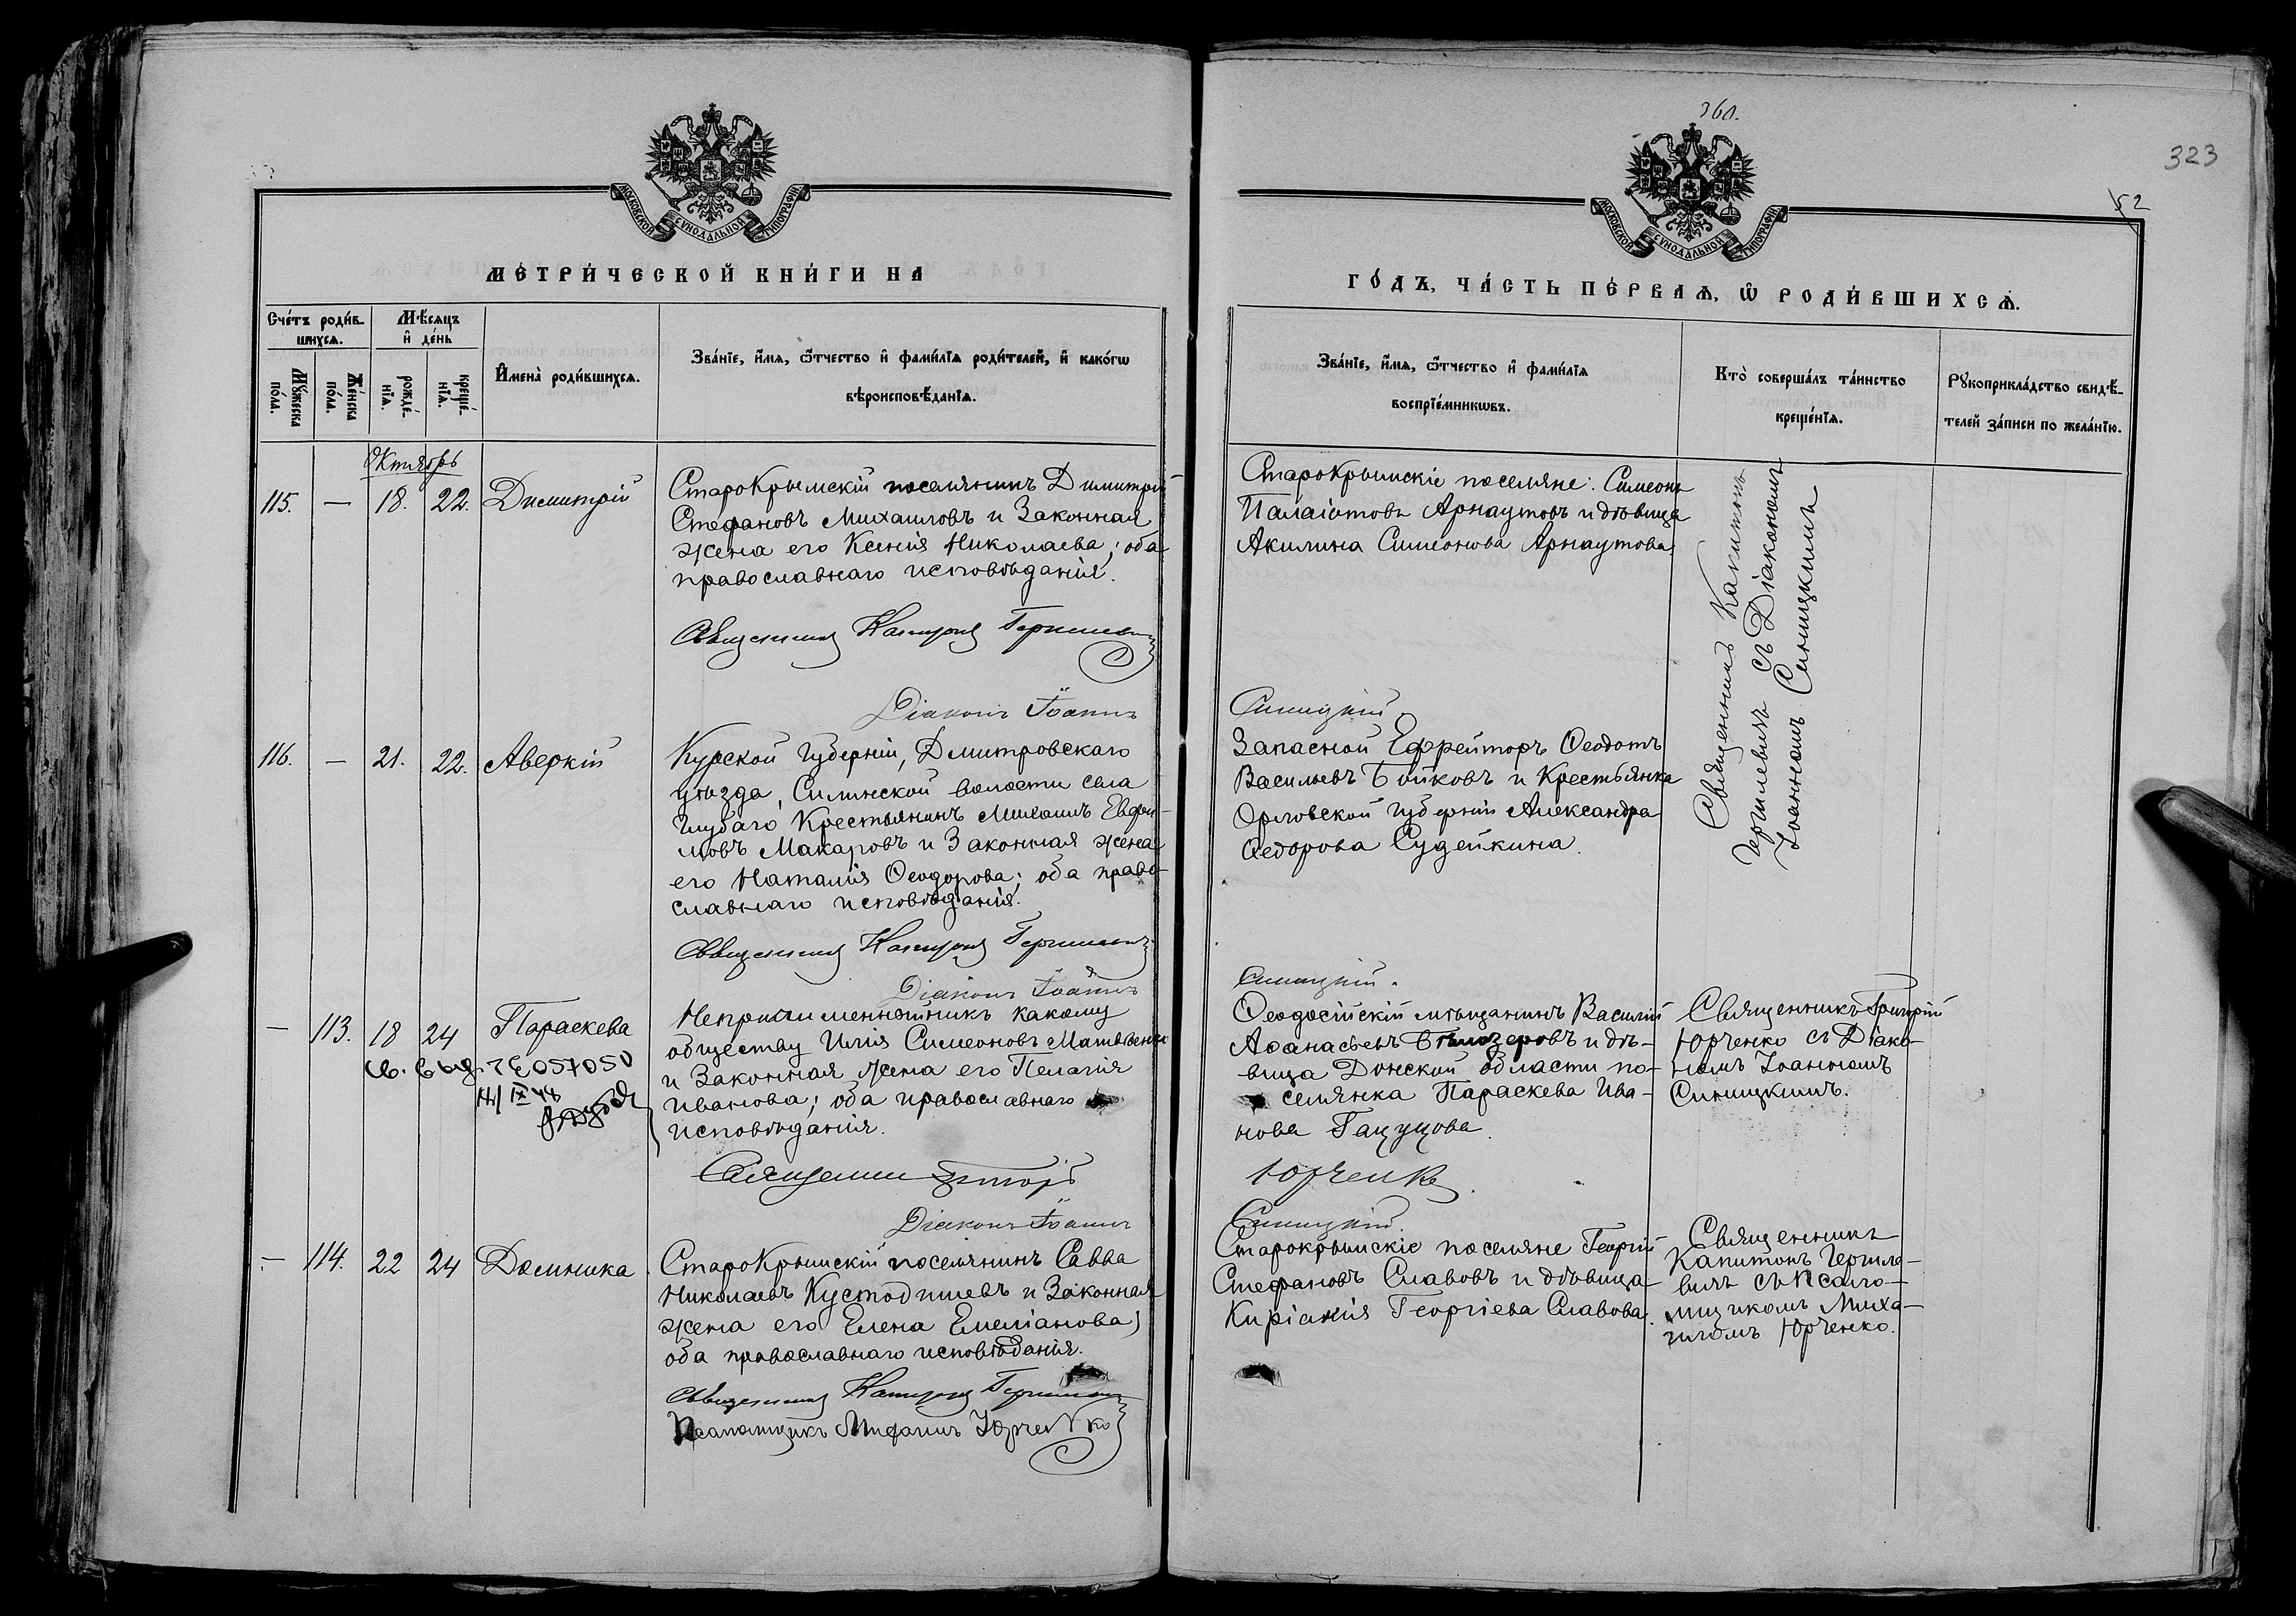 360.
323
52
МОСКОВСКОЙ СѴНОДАЛЬНОЙ ТИПОГРАФІИ
МОСКОВСКОЙ СѴНОДАЛЬНОЙ ТИПОГРАФІИ
МЕТРИ́ЧЕСКОЙ КНИ́ГИ НА
ГО́ДЪ, ЧА́СТЬ ПЕ́РВАѦ, Ѡ҆ РОДИ́ВШИХСѦ.
Сче́тъ роди́в-
шихсѧ.
Мꙋ́жеска
по́ла.
Же́нска
по́ла.
Мѣ́сѧцъ
и҆ де́нь
рожде́-
нїѧ.
креще́-
нїѧ.
И҆мена̀ роди́вшихсѧ.
Зва́нїе, и҆́мѧ, ѻ҆́тчество и҆ фами́лїѧ роди́телей, и҆ како́гѡ
вѣроисповѣ́данїѧ.
Зва́нїе, и҆́мѧ, ѻ҆́тчество и҆ фами́лїѧ
воспрїе́мникѡвъ.
Кто̀ соверша́лъ та́инство
креще́нїѧ.
Рꙋкоприкла́дство свидѣ́-
телей за́писи по жела́нїю.
Октябрь
115. — 18. 22. Димитрій
Старокрымскій поселянинъ Димитрій
Стефановъ Михаиловъ и законная
жена его Ксенія Николаева; оба
православнаго исповѣданія.
Священникъ Капитонъ Гершелевичъ
Діаконъ Іоаннъ
Старокрымскіе поселяне: Симеонъ
Палаіотовъ Арнаутовъ и дѣвица
Акилина Симеонова Арнаутова
Синицкій
Священникъ Капитонъ
съ Діакономъ
Іоанномъ Синицкимъ
116. — 21. 22. Аверкій
Курской губерніи, Дмитровскаго
уѣзда, Силинской волости села
Крестьянинъ Михаилъ Евфи-
мовъ Макаровъ и законная жена
его Наталія Ѳеодорова; оба право-
славнаго исповѣданія.
Священникъ Капитонъ
Діаконъ Іоаннъ
Запасной Ефрейторъ Ѳеодотъ
Васильевъ Бойковъ и Крестьянка
Орловской губерніи Александра
Ѳедорова Судейкина.
Синицкій.
— 113. 18 24 Параскева
св. выд. 057050
IX
Неприписанный никъ какому
обществу Илія Симеоновъ
и законная жена его Пелагія
Иванова; оба православнаго
исповѣданія.
Священникъ
Діаконъ Іоаннъ
Ѳеодосійскій мѣщанинъ Василій
Аѳанасьевъ Бѣлозеровъ и дѣ-
вица Донской области по-
селянка Параскева Ива-
нова Гацуцова.
Юрченко
Синицкій.
Священникъ Григорій
Юрченко съ Діако-
номъ Іоанномъ
Синицкимъ.
— 114. 22 24 Домника
Старокрымскій поселянинъ Савва
Николаевъ Кустодишевъ и законная
жена его Елена Емеліанова;
оба православнаго исповѣданія.
Священникъ Капитонъ
Псаломщикъ Юрченко
Старокрымскіе поселяне Георгій
Стефановъ Славовъ и дѣвица
Киріакія Георгіева Славова.
Священникъ
Капитонъ
съ псало-
мщикомъ Миха-
иломъ Юрченко.